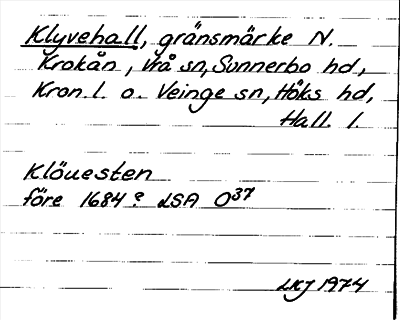 Klyvehall, gränsmärke N.
Krokån, Vrå sn, Sunnerbo hd,
Kron. l. o. Veinge sn, Höks hd,
Hall. l.
Klöuesten
före 1684? LSA O37
LKJ 1974